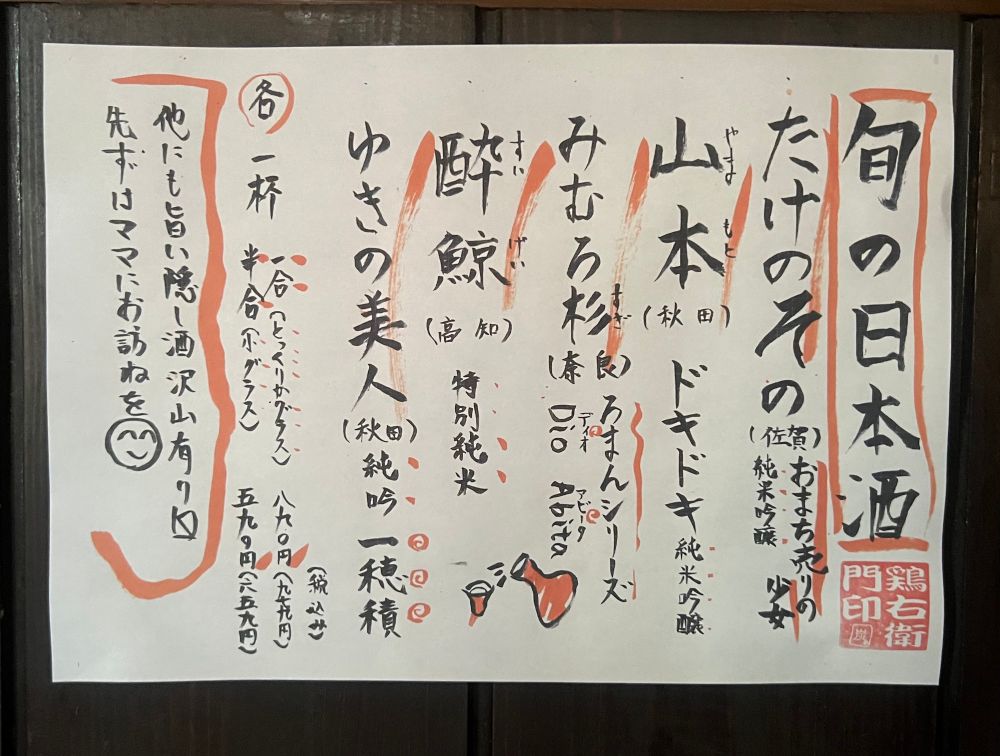 旬の日本酒
鶏右衛
門印
たけのその(佐賀)おまち売りの少女
純米吟醸
やまもと
山本(秋田)ドキドキ 純米吟醸
すぎ
みむろ杉(奈良)ろまんシリーズ
ディオ アビータ
Dio Abita
すいげい
酔鯨(高知)特別純米
ゆきの美人(秋田)純吟 一穂積
(税込み)
各 一杯 一合(とっくりかグラス) 八九〇円(九七九円)
半合(小グラス) 五九九円(六五九円)
他にも旨い隠し酒沢山有り〼
先ずはママにお訪ねを